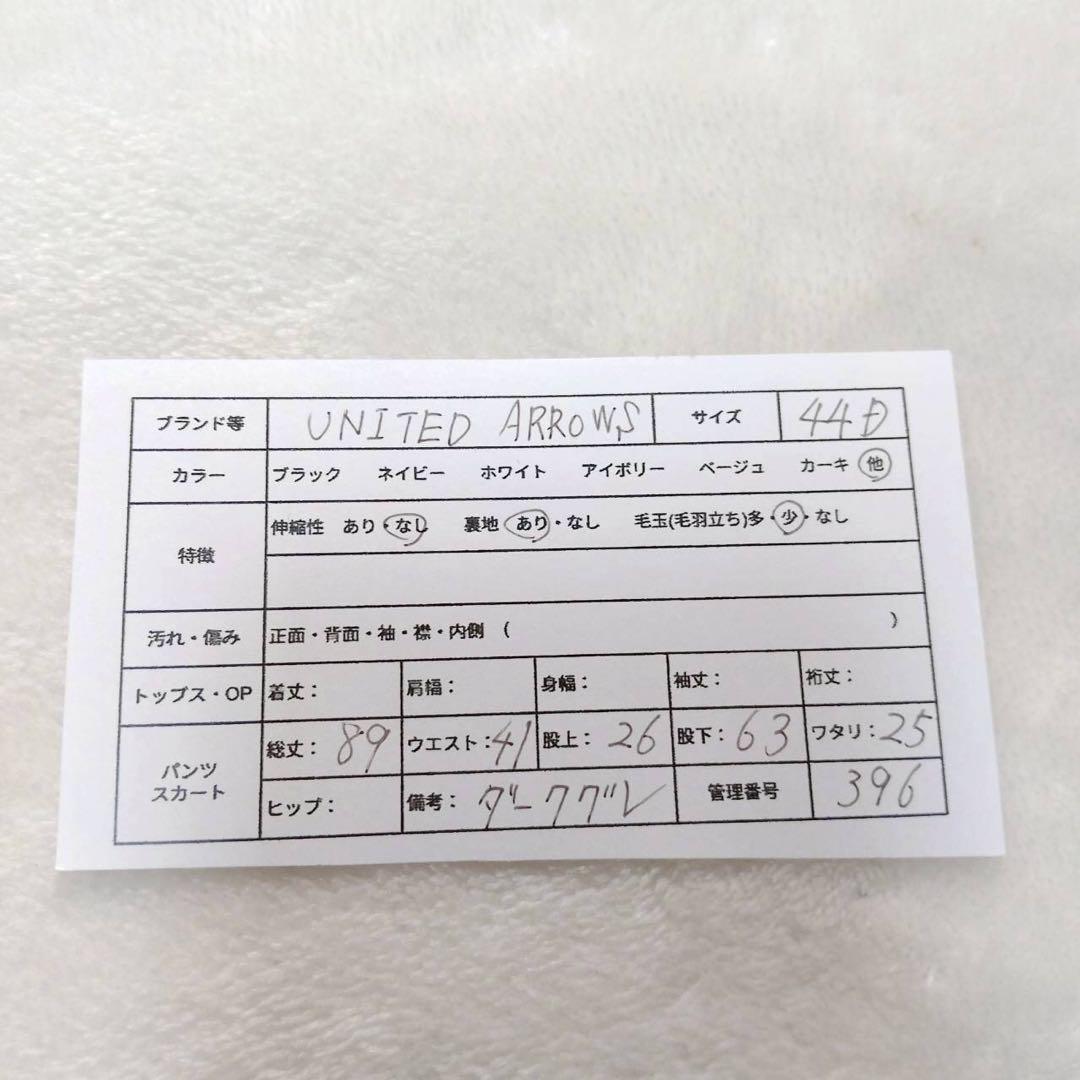 ブランド等 UNITED ARROWS サイズ 44D
カラー ブラック ネイビー ホワイト アイボリー ベージュ カーキ 他
特徴 伸縮性 あり・なし 裏地 あり・なし 毛玉(毛羽立ち)多・少・なし
汚れ・傷み 正面・背面・袖・襟・内側 ( )
トップス・OP 着丈: 肩幅: 身幅: 袖丈: 裄丈:
パンツ スカート 総丈: 89 ウエスト: 41 股上: 26 股下: 63 ワタリ: 25
ヒップ: 備考: ダークグレ 管理番号 396